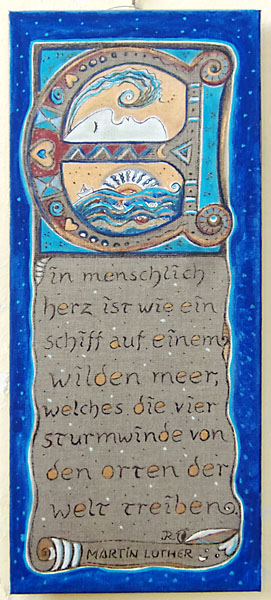 E
in menschlich
herz ist wie ein
schiff auf einem
wilden meer,
welches die vier
sturmwinde von
den orten der
welt treiben.
MARTIN LUTHER